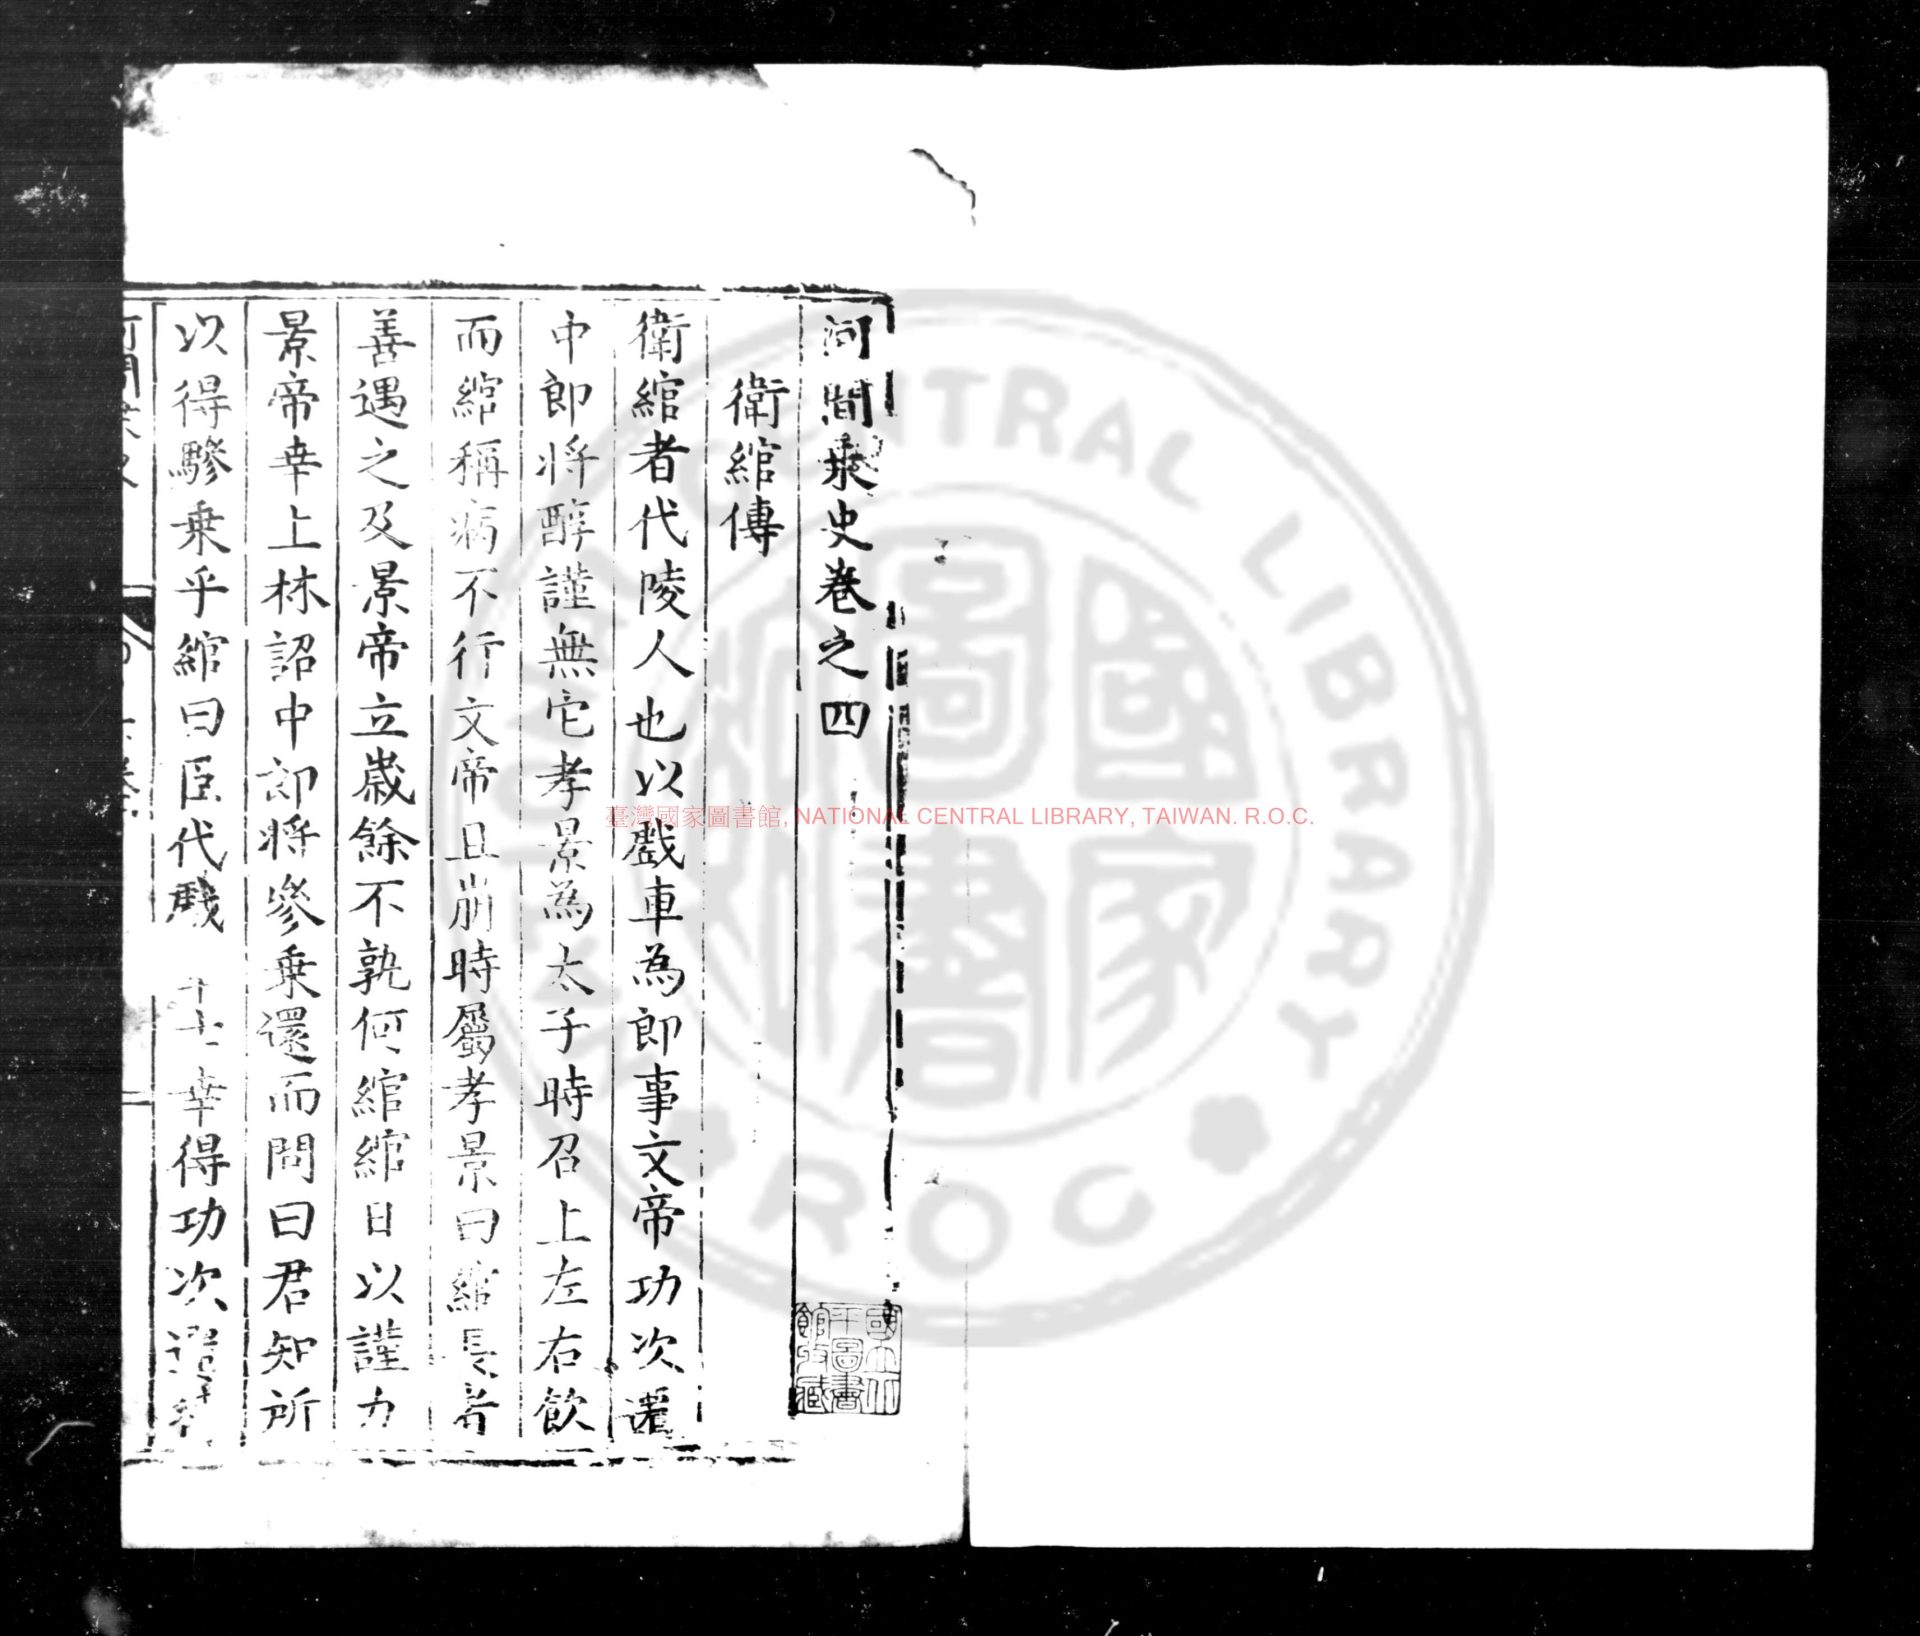 河間乘史卷之四
衛綰傳
衛綰者代陵人也以戲車為郎事文帝功次遷
中郎將醇謹無它孝景為太子時召上左右飲
而綰稱病不行文帝且崩時屬孝景曰綰長者
善遇之及景帝立歲餘不孰何綰綰日以謹力
景帝幸上林詔中郎將參乘還而問曰君知所
以得驂乘乎綰曰臣代戲 士幸得功次遷
臺灣國家圖書館, NATIONAL CENTRAL LIBRARY, TAIWAN. R.O.C.
國家圖書
NATIONAL CENTRAL LIBRARY
R O C